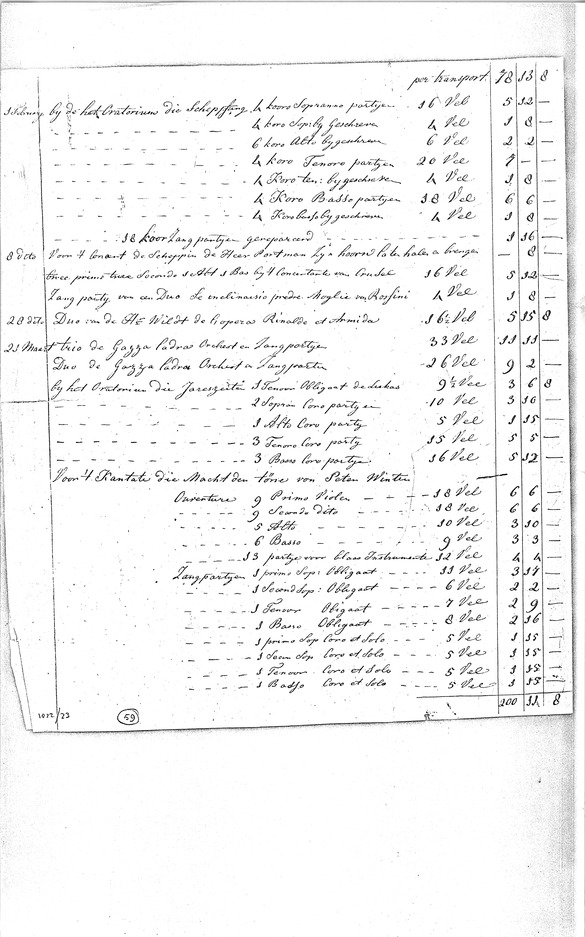 per transport 78 13 8
1 Febr by de het Oratorium die Schepffung 4 kooro Sopranno partyen 16 Vel 5 12 —
4 koro Sop: by Geschreven 4 Vel 1 8 —
6 koro Alto by geschreven 6 Vel 2 2 —
4 koro Tenoro partyen 20 Vel 7 — —
4 Koro ten: by geschreven 4 Vel 1 8 —
4 Koro Basso partyen 18 Vel 6 6 —
4 Koro basso by geschreven 4 Vel 1 8 —
18 koor Zang partyen gerepareerd 1 16 —
8 dito Voor 't Consert de Heer Portman by hooren laten halen brengen — 8 —
twee primo twee Secondo 1 Alt 1 Bas by 4 Concertante van 16 Vel 5 12 —
Zang party van een Duo Se inclinassio predre Moglie van Rossini 4 Vel 1 8 —
28 dito Duo van de Hr Wildt de Copera Rinaldo et Armida 16½ Vel 5 15 8
21 Maart trio de Gazza ladra Orchest en Zangpartyen 33 Vel 11 11 —
Duo de Gazza ladra Orchest en Zangparten 26 Vel 9 2 —
by het Oratorium die Jareszeiten 1 Tenori Obligaat de Lukas 9½ Vel 3 6 8
2 Sopran Coro partyen 10 Vel 3 10 —
1 Alto Coro party 5 Vel 1 15 —
3 Tenoro Coro party 15 Vel 5 5 —
3 Basso Coro partyen 16 Vel 5 12 —
Voor 't Kantate die Macht den töne von Peter Winter
Ouverture 9 Primo Violen 18 Vel 6 6 —
9 Secondo dito 18 Vel 6 6 —
5 Alto 10 Vel 3 10 —
6 Basso 9 Vel 3 3 —
13 partye voor blaas Instrumente 12 Vel 4 4 —
Zangpartyen 1 primo Sop: Obligaat 11 Vel 3 17 —
1 Second Sop: Obligaat 6 Vel 2 2 —
1 Tenour Obligaat 7 Vel 2 9 —
1 Basso Obligaat 8 Vel 2 16 —
1 primo Sop Coro et Solo 5 Vel 1 15 —
1 Secun Sop Coro et Solo 5 Vel 1 15 —
1 Tenour Coro et Solo 5 Vel 1 15 —
1 Basso Coro et Solo 5 Vel 1 15 —
200 11 8
1822/23 59